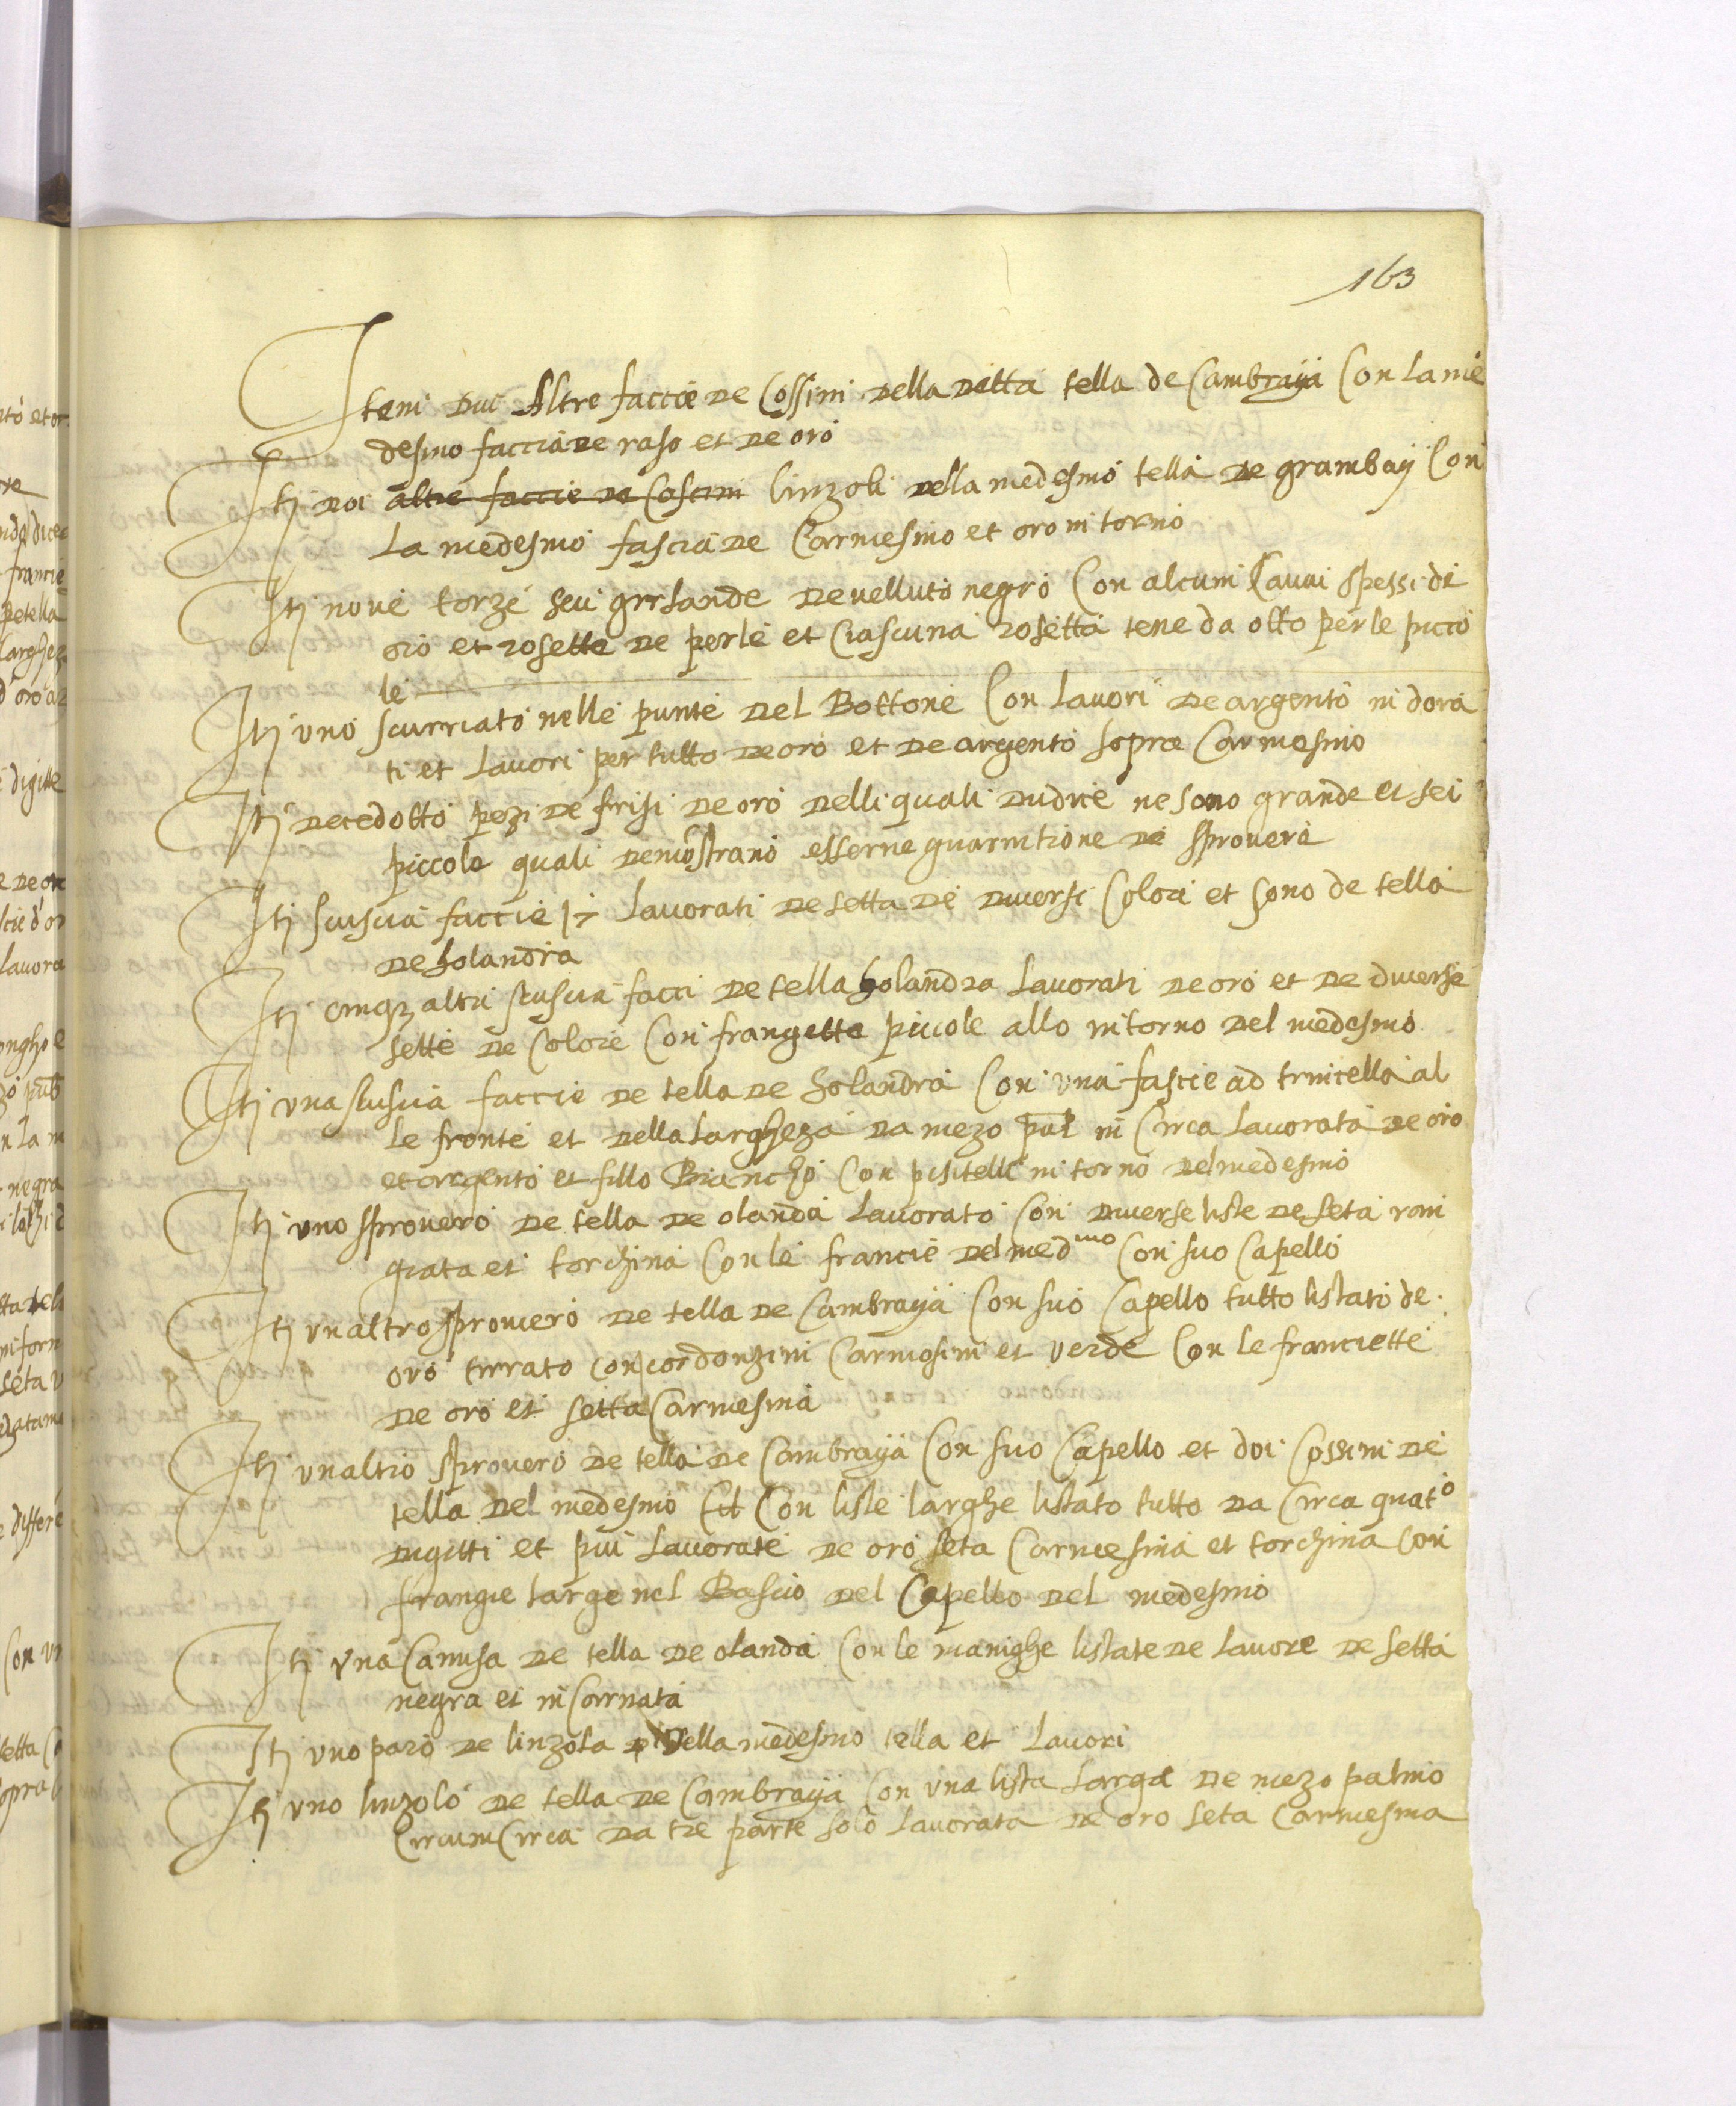 163
Item dui Altre faccie de Cossini della detta tella de Cambraya Con la me
desmo faccia de raso et de oro
Itj doi altre faccie de Coscini linzoli della medesmo tella de grambay Con
La medesmo fascia de Carmesino et oro in torno
Itj nove torze seu girlande de velluto negro Con alcuni lavui spessi di
oro et rosette de perle et Ciascuna rosetta tene da otto perle picio
le
Itj uno scurriato nelle punte del Bottone Con lavori de argento in dora
ti et Lavori per tutto de oro et de argento sopra Carmesino
Itj decedotto pezi de frisi de oro delli quali dudice ne sono grande et sei
piccole quali demostrano esserne guarnitione de sprovere
Itj sciuscia faccie 17 Lavorati de setta de diversi Colori et sono de tella
de holandra
Itj cinq; altri sciuscia facci de tella holandra Lavorati de oro et de diverse
sette de Colore Con frangette piccole allo intorno del medesmo
Itj una sciuscia faccie de tella de holandra Con una fascie ad trincella al
le fronte et della largheza da mezo pal in Circa lavorata de oro
et argento et fillo Biancho Con pisitelli in torno del medesmo
Itj uno sprovero de tella de olanda Lavorato Con diverse liste de seta ran
giata et torchina Con le francie del med.mo Con suo Capello
Itj un altro sprovero de tella de Cambraya Con suo Capello tutto listato de
oro tirrato con cordonzini Carmosini et verde Con le franciette
de oro et setta Carmesina
Itj un altro sprovero de tella de Cambraya Con suo Capello et doi Cossini de
tella del medesmo Con liste larghe listato tutto da Circa quat.o
digitti et più Lavorate de oro seta Carmesina et torchina Con
frangie large nel Bascio del Capello del medesmo
Itj una Camisa de tella de olanda Con le manighe listate de lavore de setta
negra et in Carnata
Itj uno paro de linzola della medesmo tella et Lavori
Itj uno linzolo de tella de Cambraya Con una lista larga de mezo palmo
Circum Circa da tre parte solo lavorata de oro seta Carmesina